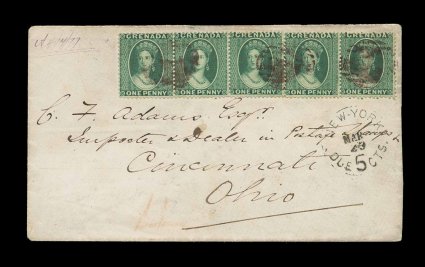 GRENADA GRENADA GRENADA GRENADA GRENADA
ONE PENNY ONE PENNY ONE PENNY ONE PENNY ONE PENNY
C. F. Adams. Esqr.
Importer & Dealer in Postage Stamps
Cincinnati
Ohio
NEW-YORK
MAR
29
5
CTS.